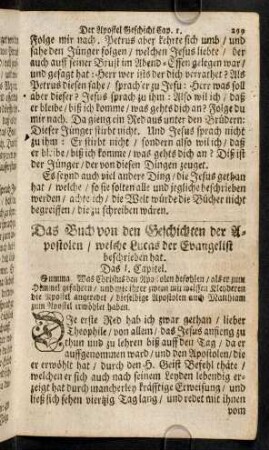 Der Apostel Geschicht Cap. 1. 259
Folge mir nach. Petrus aber kehrte sich umb / und
sahe den Jünger folgen / welchen Jesus liebt / der
auch auff seiner Brust im Abend-Essen gelegen war /
und gesagt hat: Herr wer ists der dich verrathet? Als
Petrus diesen sahe / sprach er zu Jesu: Herr was soll
aber dieser? Jesus sprach zu ihm: Also wil ich / daß
er bleibe / biß ich komme / was gehts dich an? Folge du
mir nach. Da gieng ein Red aus unter den Brüdern:
Dieser Jünger stirbt nicht. Und Jesus sprach nicht
zu ihm: Er stirbt nicht / sondern also wil ich / daß
er bleibe / biß ich komme / was gehts dich an? Diß ist
der Jünger / der von diesen Dingen zeuget.
Es seynd auch viel andere Ding / die Jesus gethan
hat / welche / so sie solten alle und jegliche beschrieben
werden / achte ich / die Welt würde die Bücher nicht
begreiffen / die zu schreiben wären.
Das Buch von den Geschichten der A-
postolen / welche Lucas der Evangelist
beschrieben hat.
Das 1. Capitel.
Summa. Was Christus den Apostolen befohlen / als er zum
Himmel gefahren / und wie ihrer zween mit weissen Kleideren
die Apostel angeredet / dieselbige Apostolen auch Matthiam
zum Apostel erwöhlet haben.
Die erste Red hab ich zwar gethan / lieber
Theophile / von allem / das Jesus anfieng zu
thun und zu lehren biß auff den Tag / da er
auffgenommen ward / und den Apostolen / die
er erwöhlt hat / durch den H. Geist Befehl thäte /
welchen er sich auch nach seinem Leyden lebendig er-
zeigt hat durch mancherley kräfftige Erweisung / und
ließ sich sehen viertzig Tag lang / und redet mit ihnen
vom